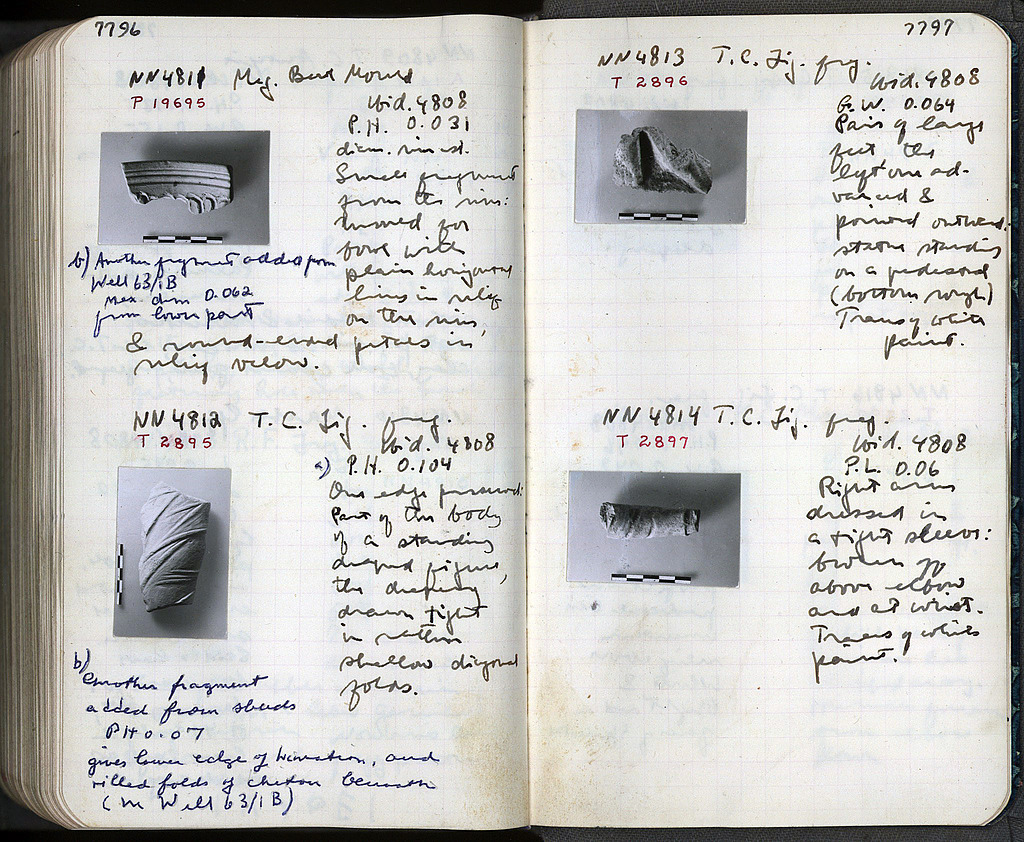 7796
NN4811 Meg. Bowl Mould
P 19695
Wid. 4808
P.H. 0.031
diam. rim est.
Small fragment
from the rim:
mould for
bowl with
plain horizontal
lines in relief
on the rim,
& round-ended petals in
relief below.
b) Another fragment added from
Well 63/1B
Max. dim 0.062
from lower part
NN4812 T.C. Fig. frag.
T 2895
Wid. 4808
a) P.H. 0.104
One edge preserved:
Part of the body
of a standing
draped figure,
the drapery
drawn tight
in rather
shallow diagonal
folds.
b)
Another fragment
added from sherds
PH 0.07
gives lower edge of himation, and
rilled folds of chiton beneath
(in Well 63/1B)
7797
NN4813 T.C. Fig. frag.
T 2896
Wid. 4808
G.W. 0.064
Pair of large
feet the
left one ad-
vanced &
pointed outward:
statue standing
on a pedestal
(bottom rough)
Traces of white
paint.
NN4814 T.C. Fig. frag.
T 2897
Wid. 4808
P.L. 0.06
Right arm
dressed in
a tight sleeve:
broken off
above elbow
and at wrist.
Traces of white
paint.